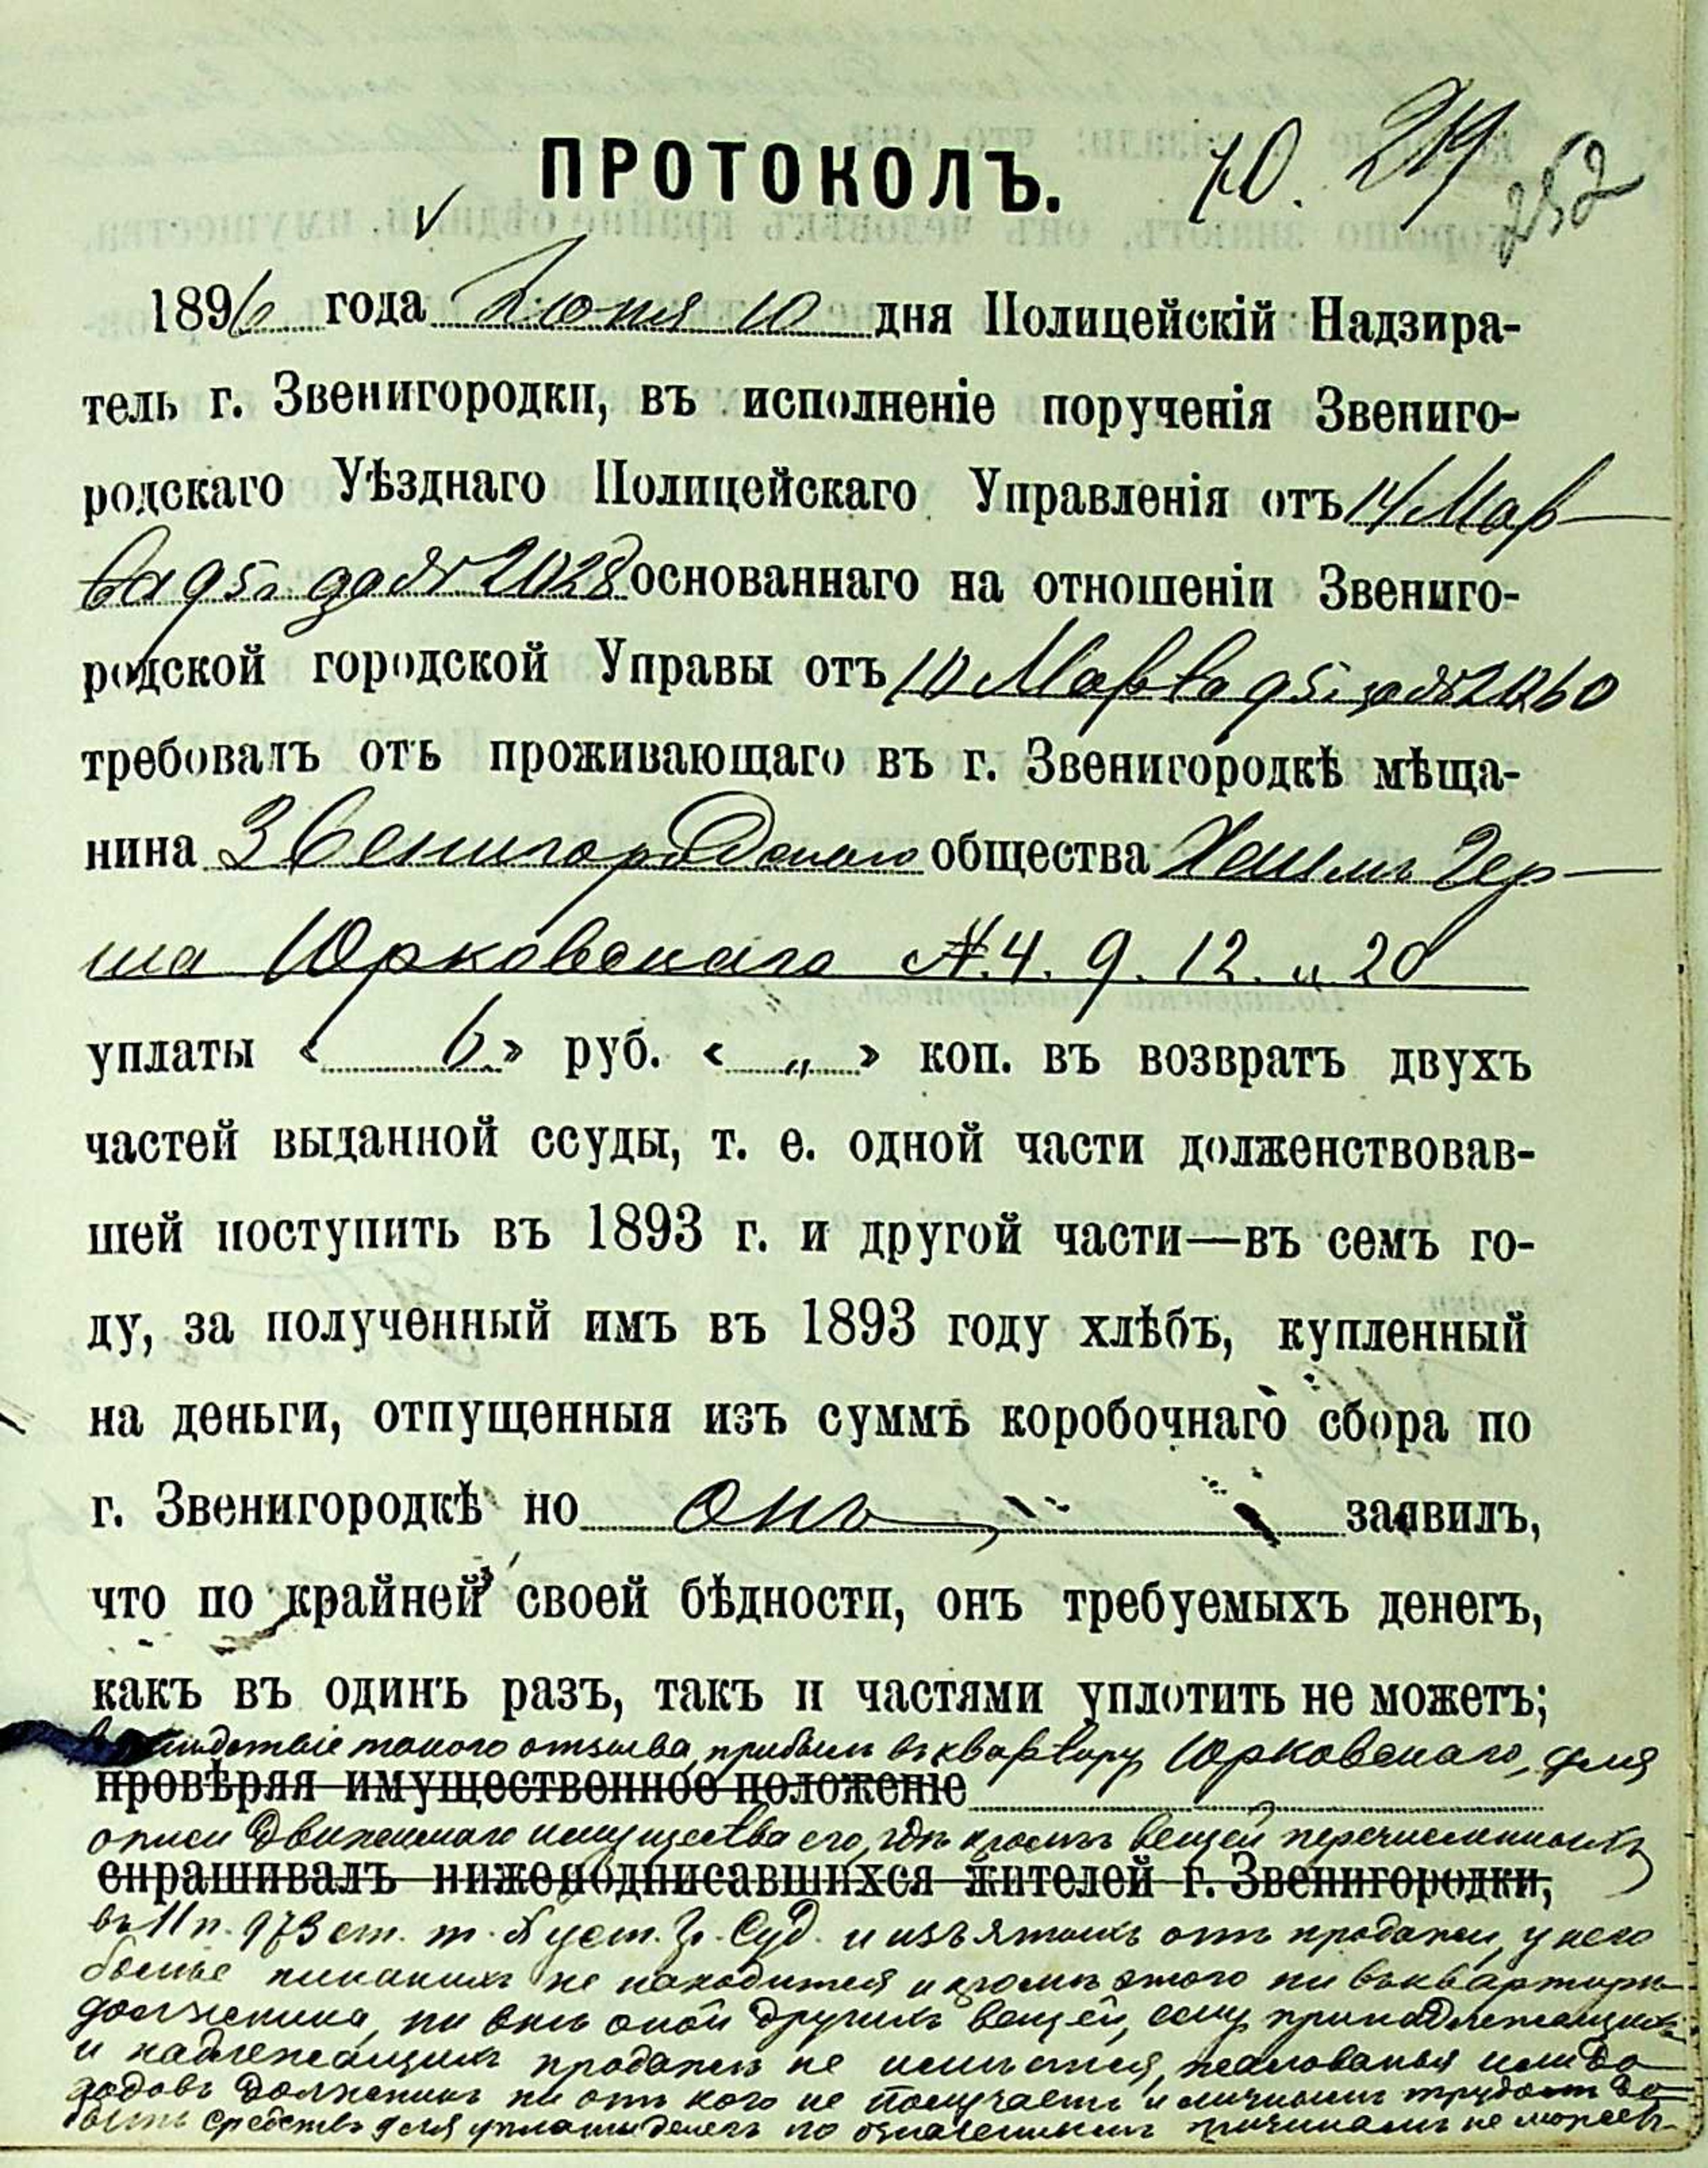 ПРОТОКОЛЪ.
70. 219
252
1896 года Июня 10 дня Полицейскій Надзира-
тель г. Звенигородки, въ исполненіе порученія Звениго-
родскаго Уѣзднаго Полицейскаго Управленія отъ 14 Мар-
та 95 г. за № 2028 основаннаго на отношеніи Звениго-
родской городской Управы отъ 10 Марта 95 г. за №
требовалъ отъ проживающаго въ г. Звенигородкѣ мѣща-
нина Звенигородскаго общества Гер-
ша Юрковскаго №. 4. 9. 12. и 20
уплаты « 6 » руб. « „ » коп. въ возвратъ двухъ
частей выданной ссуды, т. е. одной части долженствовав-
шей поступить въ 1893 г. и другой части—въ семъ го-
ду, за полученный имъ въ 1893 году хлѣбъ, купленный
на деньги, отпущенныя изъ суммъ коробочнаго сбора по
г. Звенигородкѣ но онъ заявилъ,
что по крайней своей бѣдности, онъ требуемыхъ денегъ,
какъ въ одинъ разъ, такъ и частями уплотить не можетъ;
вслѣдствіе такого отзыва, прибылъ въ квартиру Юрковскаго, для
провѣряя имущественное положеніе
описи движимаго имущества его, гдѣ кромѣ вещей перечисленныхъ
спрашивалъ нижеподписавшихся жителей г. Звенигородки,
въ 11 п. 973 ст. т. уст. Гр. Суд. и изъятыхъ отъ продажи, у него
больше никакихъ не находится и кромѣ этого ни въ квартирѣ
должника, ни внѣ оной другихъ вещей, ему принадлежащихъ
и надлежащихъ продажѣ не имѣется, жалованья или до-
ходовъ должникъ ни отъ кого не получаетъ и личнымъ трудомъ до-
быть средствъ для уплаты денегъ по означеннымъ причинамъ не можетъ